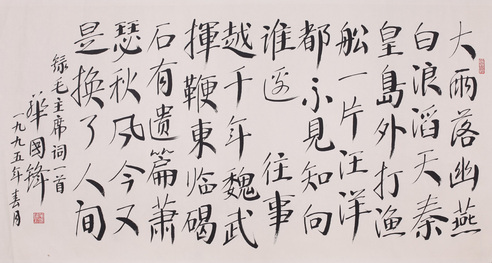 大雨落幽燕
白浪滔天秦
皇島外打漁
船一片汪洋
都不見知向
誰邊 往事
越千年魏武
揮鞭東临碣
石有遺篇蕭
瑟秋风今又
是換了人间
録毛主席词一首
華國鋒
一九九五年春月